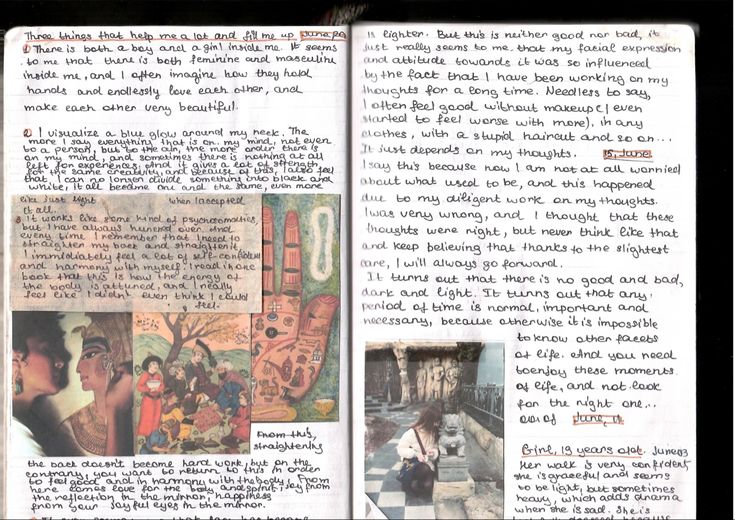 Three things that help me a lot and fill me up June, 20
1) There is both a boy and a girl inside me. It seems
to me that there is both feminine and masculine
inside me, and I often imagine how they hold
hands and endlessly love each other, and
make each other very beautiful.
2. I visualize a blue glow around my neck. The
more I say everything that is on my mind, not even
to a person, but to the air, the more order there is
on my mind, and sometimes there is nothing at all
left for experiences. And it gives a lot of strength
for the same creativity, and because of this, I also feel
that I can no longer divide something into black and
white, it all became one and the same, even more
like just light when I accepted
it all.
3 It works like some kind of psychosomatics,
but I have always hunched over. And
every time I remember that I need to
straighten my back and straighten it,
I immediately feel a lot of self-confident
and harmony with myself. I read in one
book that this is how the energy of
the body is attuned, and I really
feel like I didn't even think I could
feel.
From this,
straightening
the back doesn't become hard work, but on the
contrary, you want to return to this in order
to feel good and in harmony with the body. From
here comes love for the body and spirit, joy from
the reflection in the mirror, happiness
from your joyful eyes in the mirror.
is lighter. But this is neither good nor bad, it
just really seems to me that my facial expression
and attitude towards it was so influenced
by the fact that I have been working on my
thoughts for a long time. Needless to say,
I often feel good without makeup (I even
started to feel worse with more), in any
clothes, with a stupid haircut and so on...
It just depends on my thoughts. 15, June
I say this because now I am not at all worried
about what used to be, and this happened
due to my diligent work on my thoughts.
I was very wrong, and I thought that these
thoughts were right, but never think like that
and keep believing that thanks to the slightest
care, I will always go forward.
It turns out that there is no good and bad,
dark and light. It turns out that any
period of time is normal, important and
necessary, because otherwise it is impossible
to know other facets
of life. And you need
to enjoy these moments
of life, and not look
for the right one...
June,
Girl, 19 years old. June 03
Her walk is very confident,
she is graceful and seems
to be light, but sometimes
heavy, which adds drama
when she is sad. She is